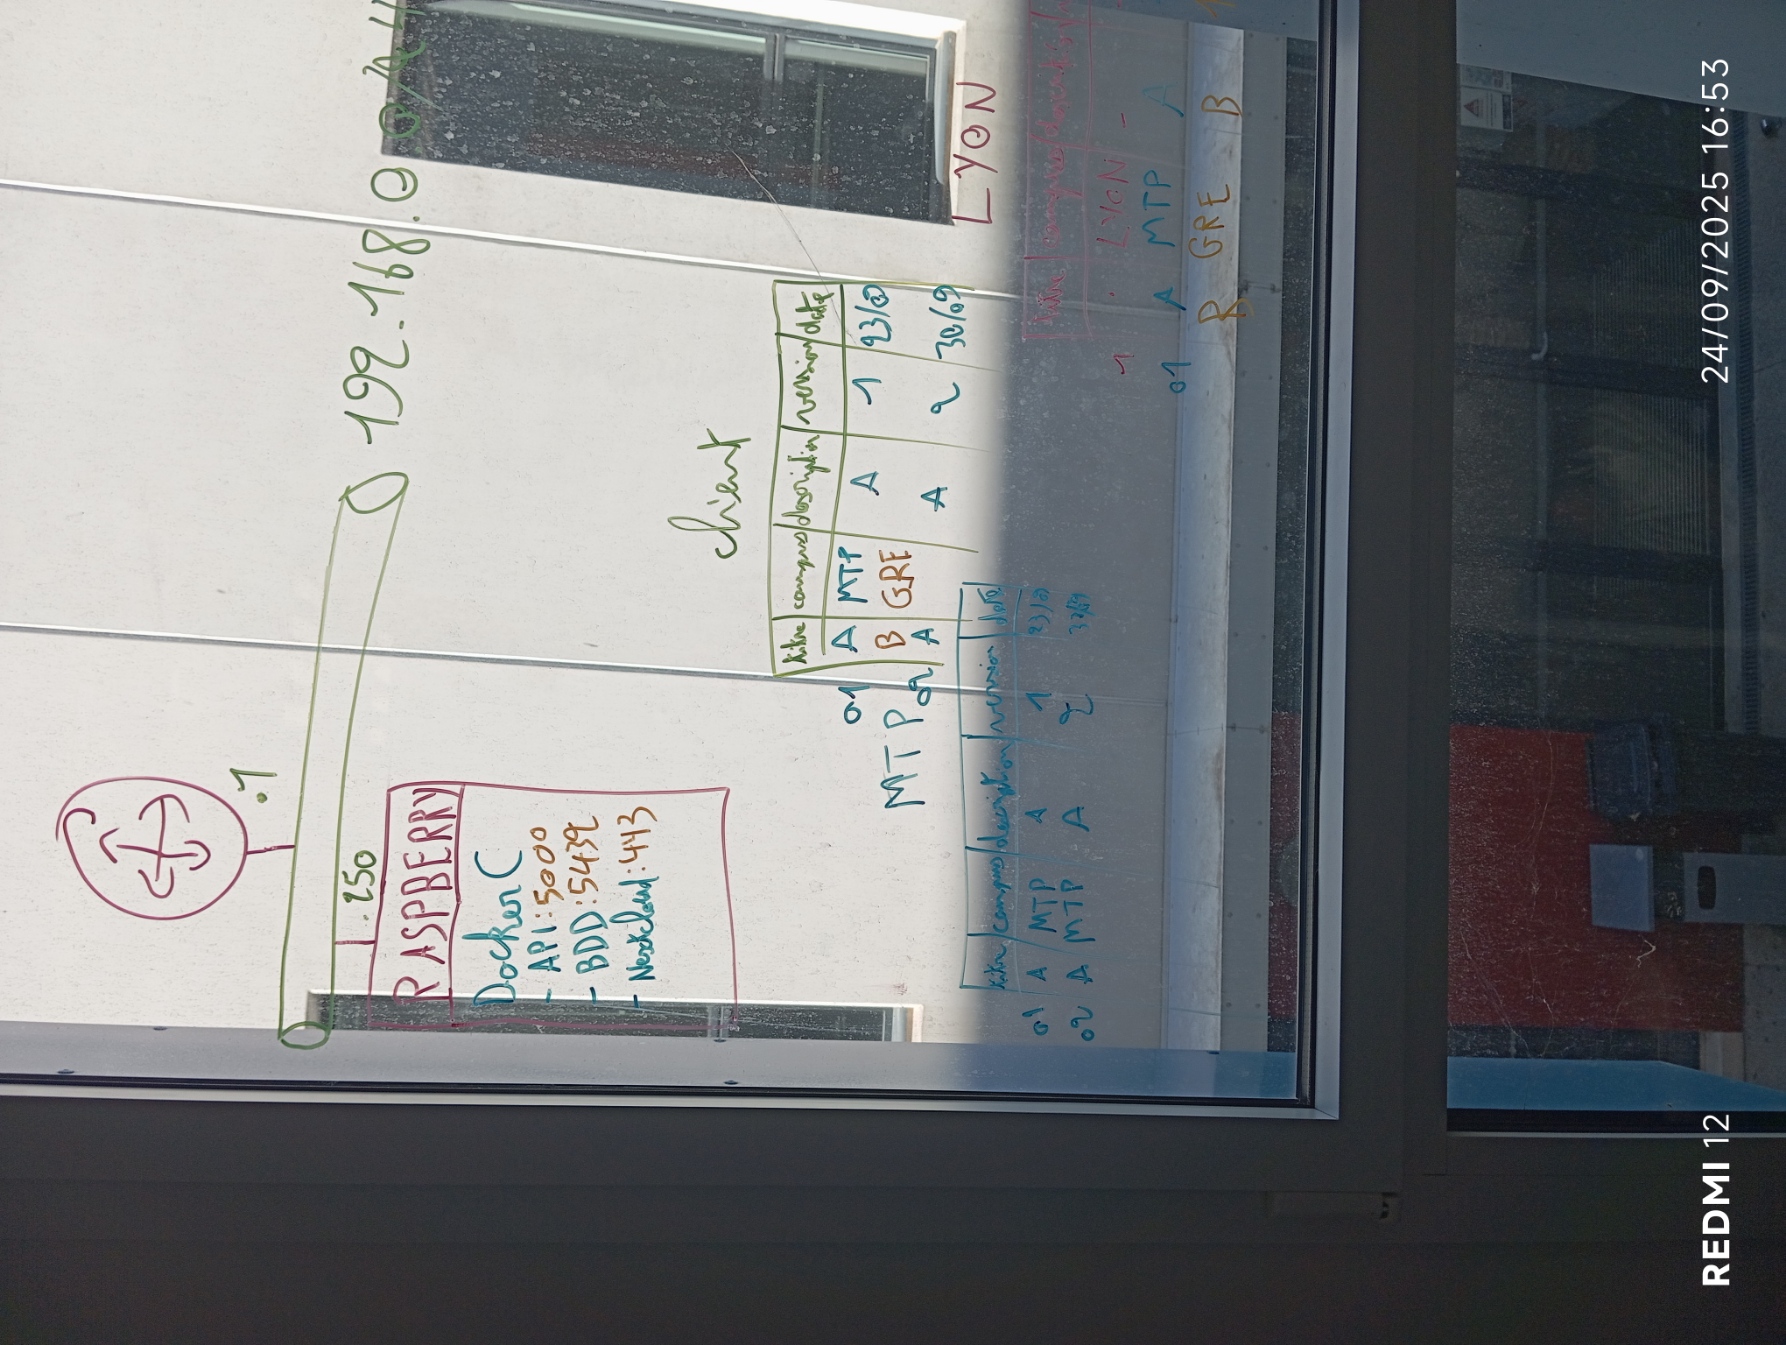 .1
192.168.0.0/24
.250
RASPBERRY
Docker C
- API:5000
- BDD:5432
- Nextcloud:443
client
titre campus description version date
01 A MTP A 1 23/09
B GRE
02 A A 2 30/09
MTP
titre campus description version date
01 A MTP A 1 23/09
02 A MTP A 2
LYON
titre campus
1 LYON -
01 A MTP A
B GRE B
REDMI 12
24/09/2025 16:53